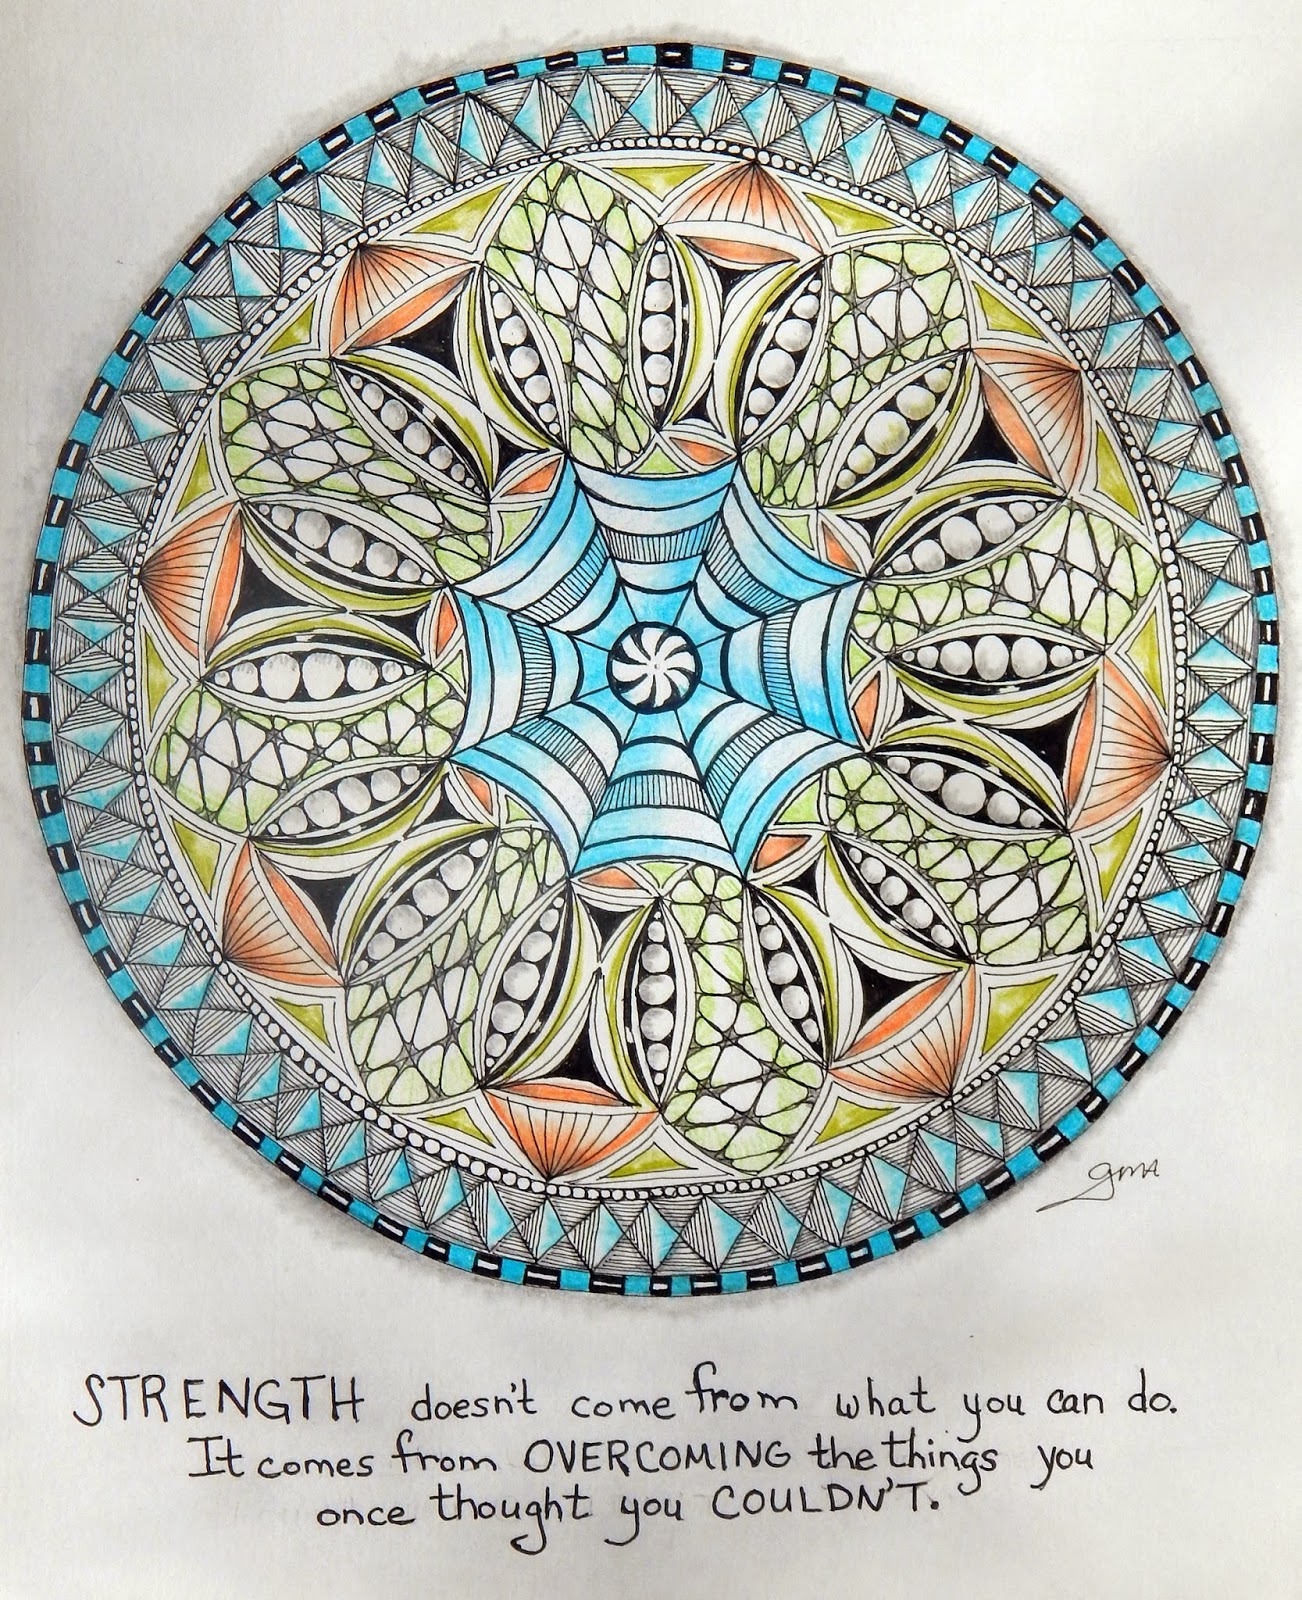 gmA
STRENGTH doesn't come from what you can do.
It comes from OVERCOMING the things you
once thought you COULDN'T.